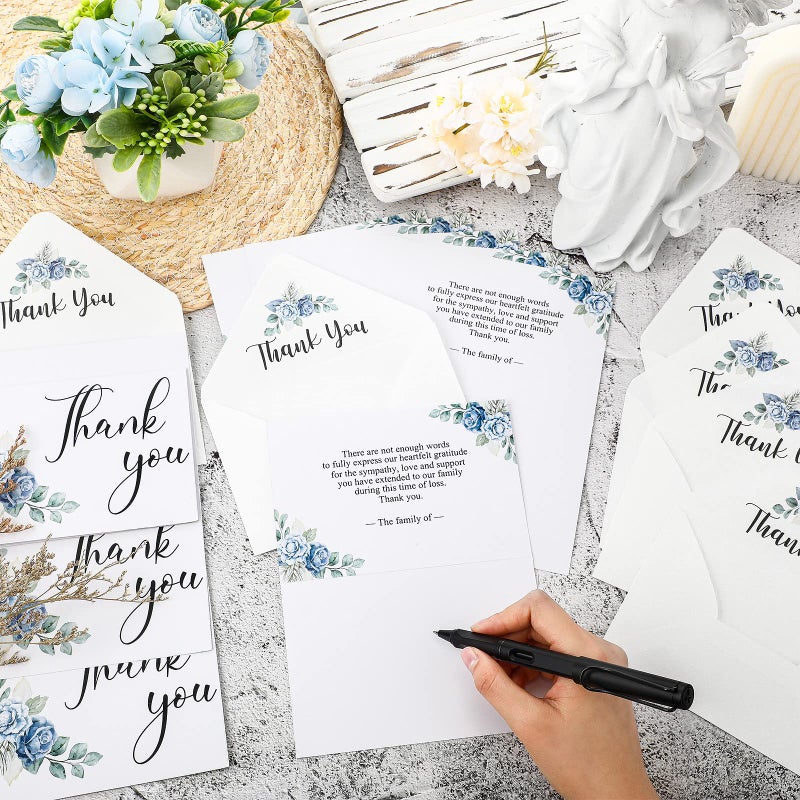 Thank You
Thank
you
Thank
you
Thank
you
Thank You
There are not enough words
to fully express our heartfelt gratitude
for the sympathy, love and support
you have extended to our family
during this time of loss.
Thank you.
— The family of —
There are not enough words
to fully express our heartfelt gratitude
for the sympathy, love and support
you have extended to our family
during this time of loss.
Thank you.
— The family of —
Thank You